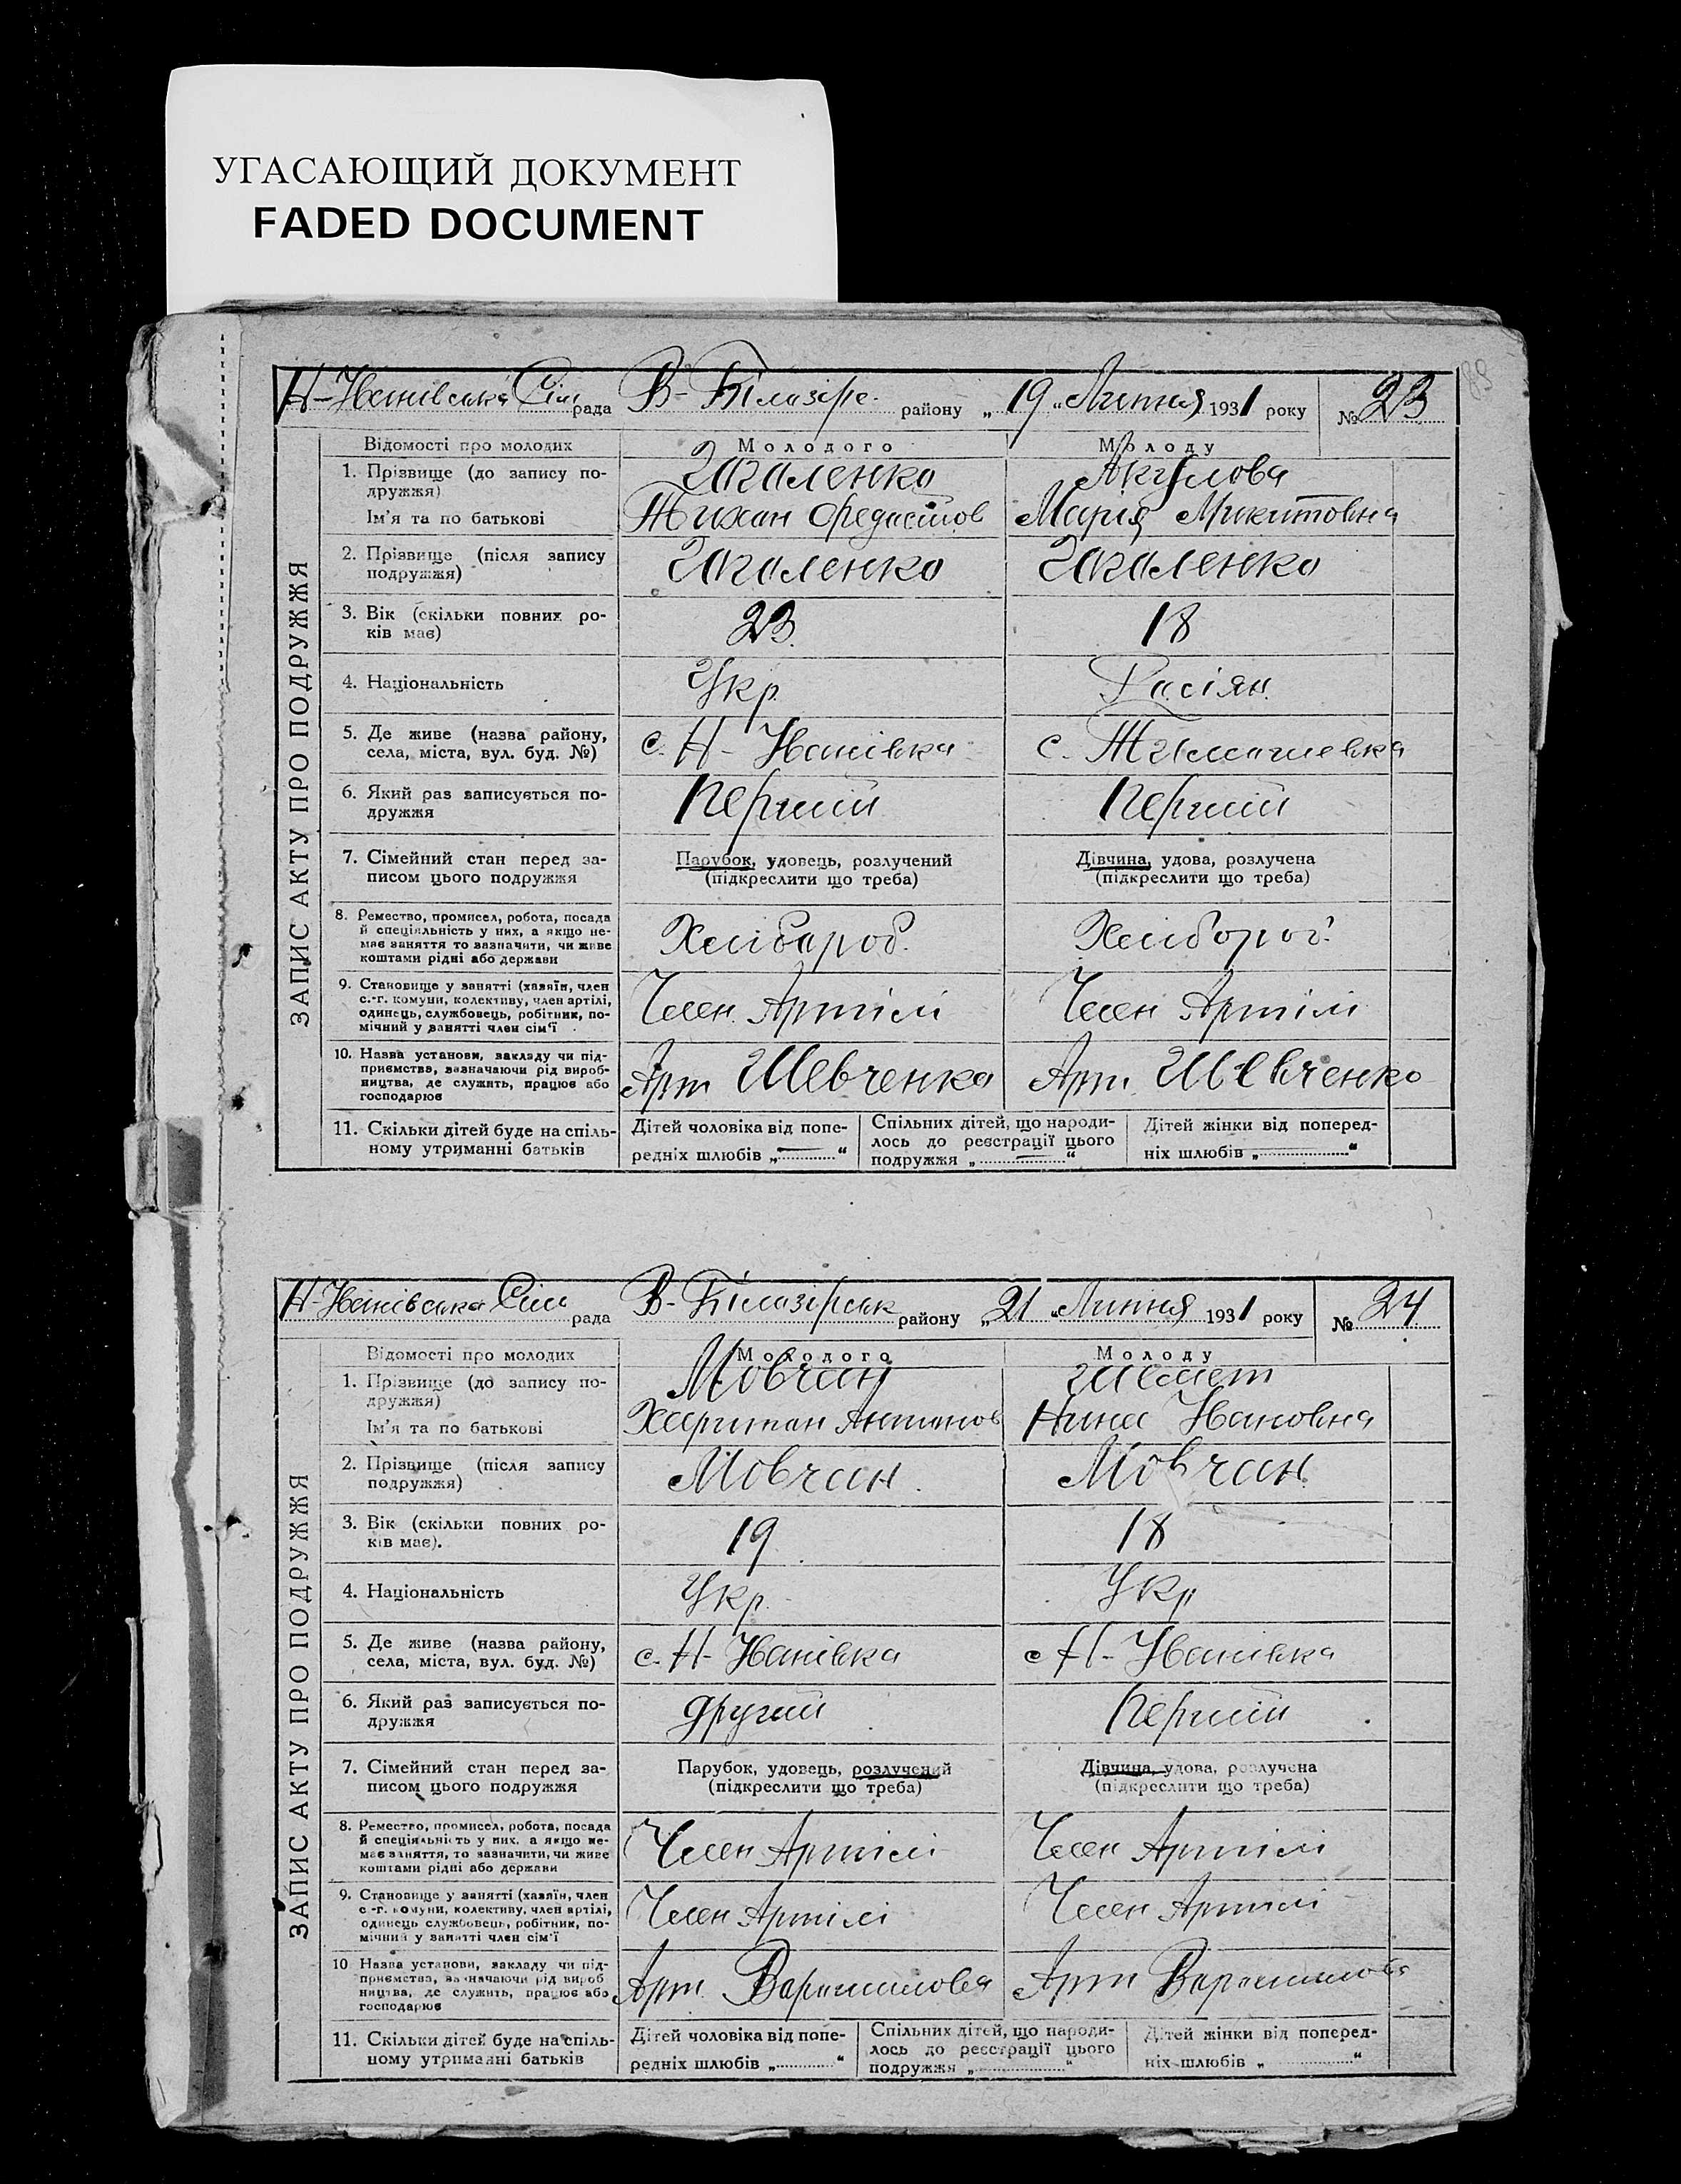 УГАСАЮЩИЙ ДОКУМЕНТ
FADED DOCUMENT
Н-Іванівська Сіль рада В-Білазірс. району „19“ Липня 1931 року № 23
ЗАПИС АКТУ ПРО ПОДРУЖЖЯ
Відомості про молодих Молодого Молоду
1. Прізвище (до запису по-
дружжя)
Чагаленко Акулова
Ім'я та по батькові Тихан Федастов Марія Микитовна
2. Прізвище (після запису
подружжя)
Чагаленко Чагаленко
3. Вік (скільки повних ро-
ків має)
23 18
4. Національність Укр. Расіян.
5. Де живе (назва району,
села, міста, вул. буд. №)
с. Н-Іванівка с. Тимашевка
6. Який раз записується по-
дружжя
Перший Перший
7. Сімейний стан перед за-
писом цього подружжя
Парубок, удовець, розлучений
(підкреслити що треба)
Дівчина, удова, розлучена
(підкреслити що треба)
8. Ремество, промисел, робота, посада
й спеціяльність у них, а якщо не-
має заняття то зазначити, чи живе
коштами рідні або держави
Хлібароб. Хлібороб.
9. Становище у занятті (хазяїн, член
с.-г. комуни, колективу, член артілі,
одинець, службовець, робітник, по-
мічний у занятті член сім'ї
Член Артілі Член Артілі
10. Назва установи, закладу чи під-
приємства, зазначаючи рід вироб-
ництва, де служить, працює або
господарює
Арт Шевченка Арт. Шевченко
11. Скільки дітей буде на спіль-
ному утриманні батьків
Дітей чоловіка від попе-
редніх шлюбів „—“
Спільних дітей, що народи-
лось до реєстрації цього
подружжя „—“
Дітей жінки від поперед-
ніх шлюбів „—“
Н-Іванівська Сіль рада В-Білазірськ району „21“ Липня 1931 року № 24
ЗАПИС АКТУ ПРО ПОДРУЖЖЯ
Відомості про молодих Молодого Молоду
1. Прізвище (до запису по-
дружжя)
Мовчан
Ім'я та по батькові Харитан Антонов Нина Івановна
2. Прізвище (після запису
подружжя)
Мовчан. Мовчан.
3. Вік (скільки повних ро-
ків має).
19 18
4. Національність Укр. Укр
5. Де живе (назва району,
села, міста, вул. буд. №)
с. Н-Іванівка с Н-Іванівка
6. Який раз записується по-
дружжя
другий Перший
7. Сімейний стан перед за-
писом цього подружжя
Парубок, удовець, розлучений
(підкреслити що треба)
Дівчина, удова, розлучена
(підкреслити що треба)
8. Ремество, промисел, робота, посада
й спеціяльність у них, а якщо не-
має заняття, то зазначити, чи живе
коштами рідні або держави
Член Артілі Член Артілі
9. Становище у занятті (хазяїн, член
с.-г. комуни, колективу, член артілі,
одинець службовець, робітник, по-
мічний у занятті член сім'ї
Член Артілі Член Артілі
10 Назва установи, закладу чи під-
приємства, зазначаючи рід вироб
ництва, де служить, працює або
господарює
Арт. Варашилова Арт Варашилова
11. Скільки дітей буде на спіль-
ному утриманні батьків
Дітей чоловіка від попе-
редніх шлюбів „ “
Спільних дітей, що народи-
лось до реєстрації цього
подружжя „ “
Дітей жінки від поперед-
ніх шлюбів „ “